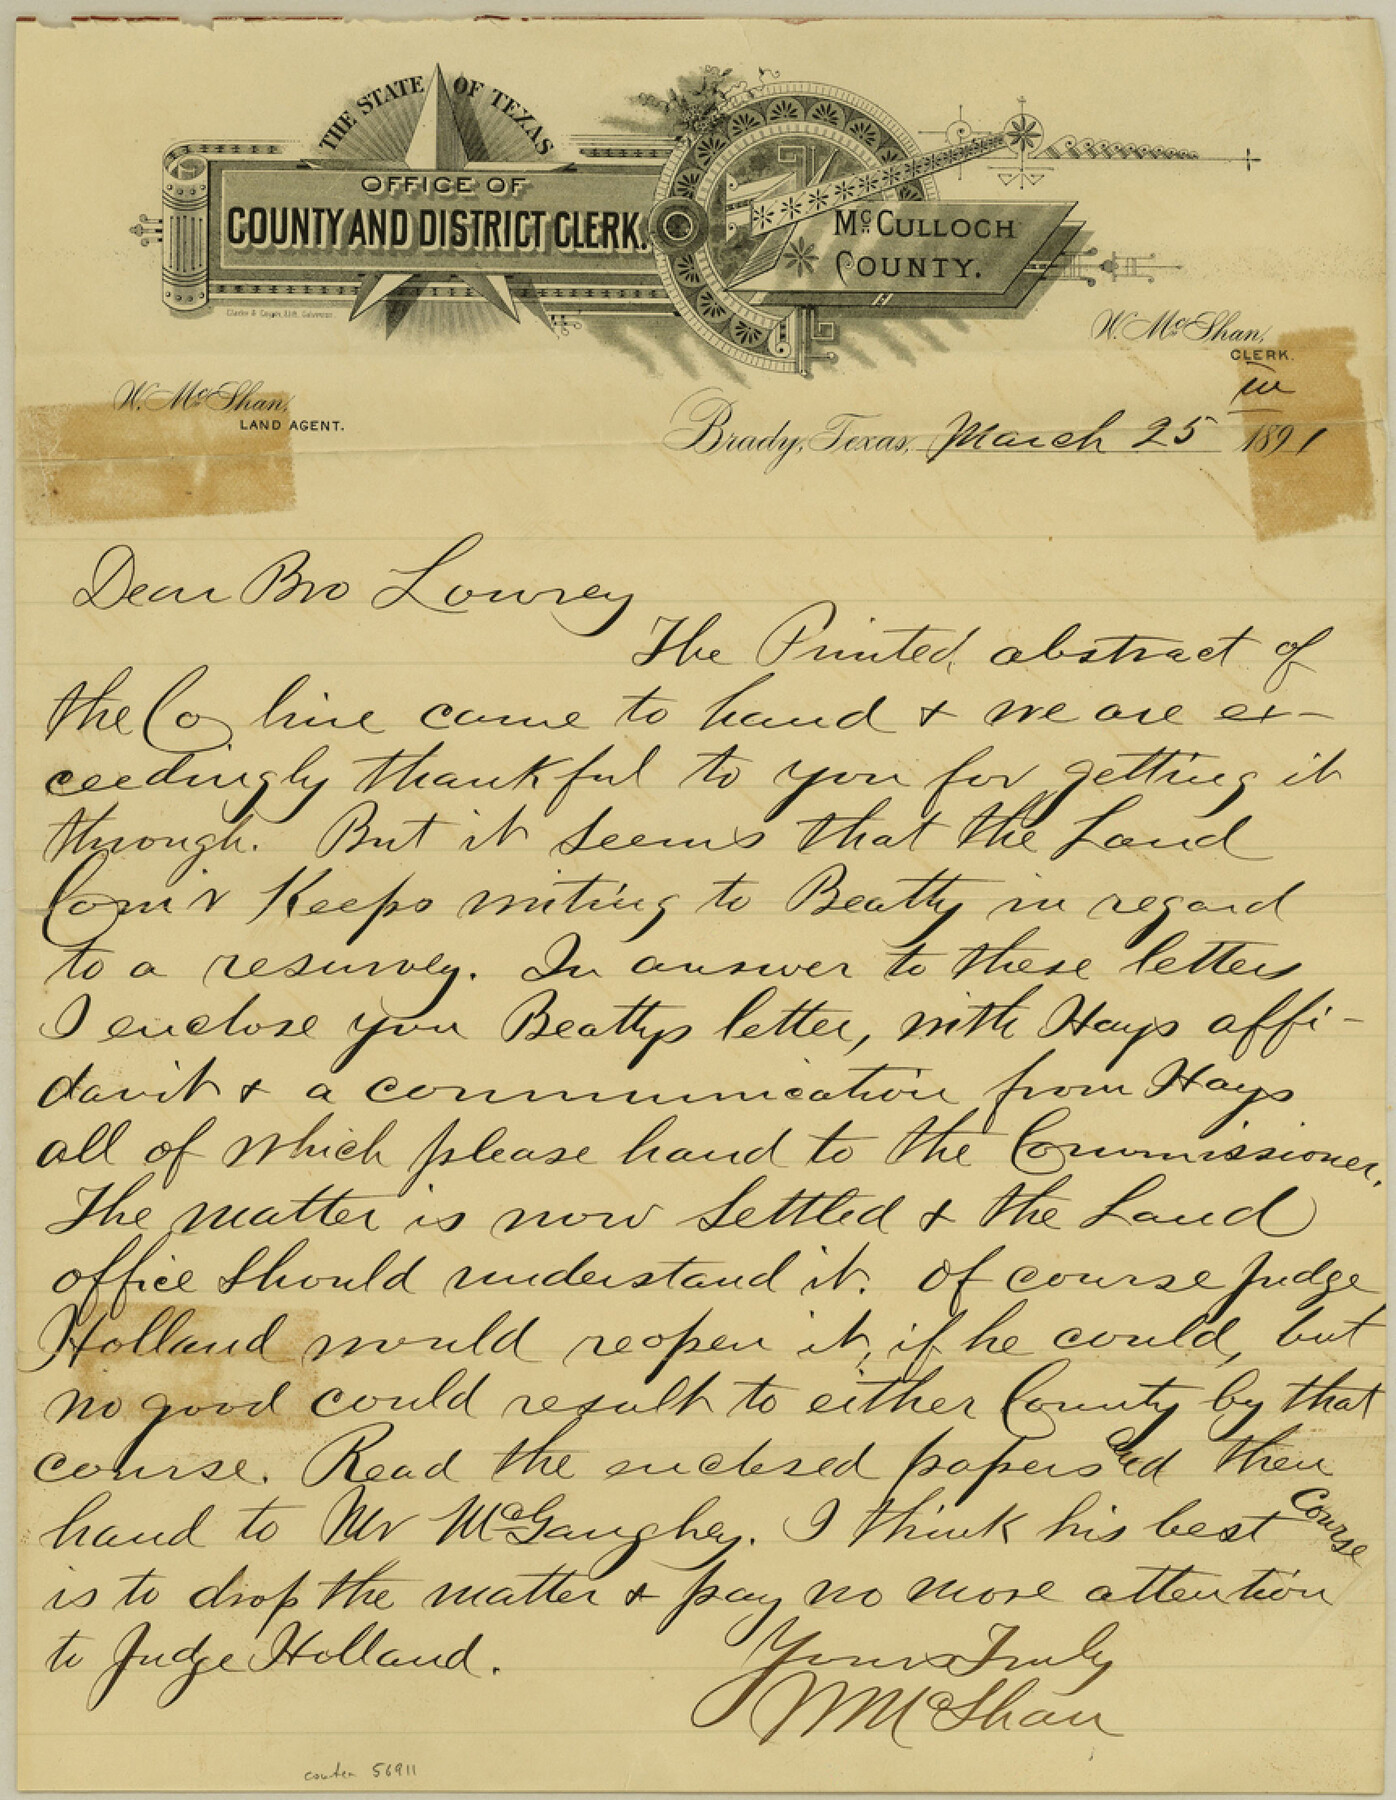 THE STATE OF TEXAS
OFFICE OF
COUNTY AND DISTRICT CLERK.
McCULLOCH
COUNTY.
W. McShan,
CLERK.
W. McShan,
LAND AGENT.
Brady, Texas, March 25 1891
Dear Bro Lowrey
The Printed abstract of
the Co line came to hand & we are ex-
ceedingly thankful to you for getting it
through. But it seems that the Land
Com'r Keeps writing to Beatty in regard
to a resurvey. In answer to these letters
I enclose you Beattys letter, with Hays affi-
davit & a communication from Hays
all of which please hand to the Commissioner.
The matter is now settled & the Land
office should understand it. Of course Judge
Holland would reopen it, if he could, but
no good could result to either County by that
course. Read the enclosed papers and then
hand to Mr McGaughey. I think his best course
is to drop the matter & pay no more attention
to Judge Holland.
Yours Truly
W McShan
counter 56911